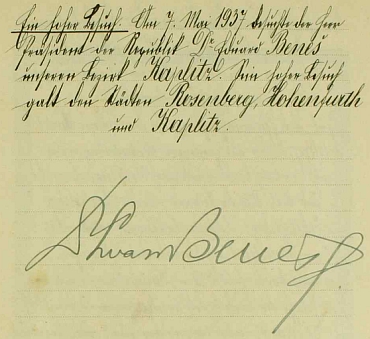 Ein hoher Besuch. Am 7. Mai 1937 besuchte der Herr
Präsident der Republik Dr Eduard Beneš
unseren Bezirk Kaplitz. Sein hoher Besuch
galt den Städten Rosenberg, Hohenfurth
und Kaplitz.
Dr Edvard Beneš